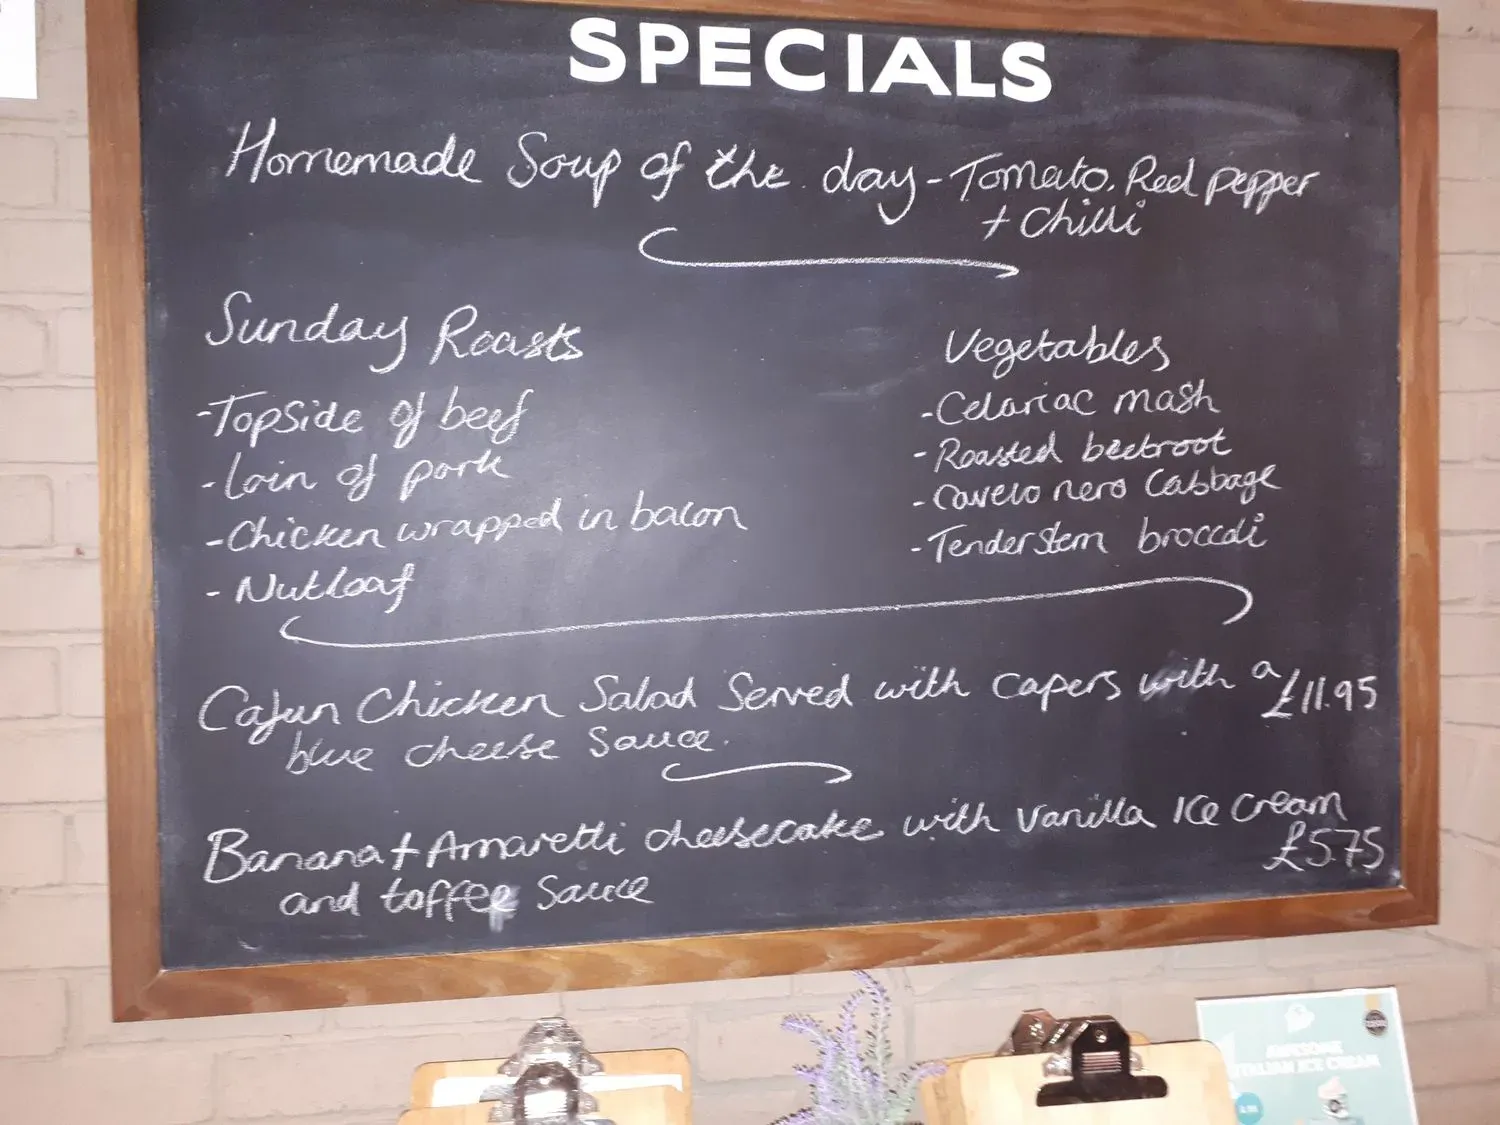 SPECIALS
Homemade Soup of the day - Tomato, Red pepper
+ Chilli
Sunday Roasts
- Topside of beef
- Loin of pork
- Chicken wrapped in bacon
- Nutloaf
Vegetables
- Celariac mash
- Roasted beetroot
- Cavelo nero Cabbage
- Tenderstem broccoli
Cajun Chicken Salad Served with capers with a £11.95
blue cheese Sauce.
Banana + Amaretti cheesecake with vanilla Ice Cream
£5.75
and toffee Sauce
AWESOME
ITALIAN ICE CREAM